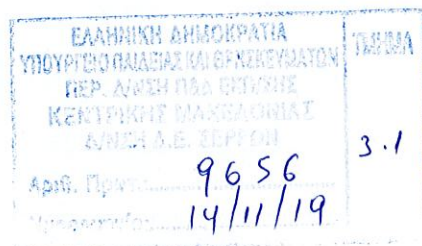 ΕΛΛΗΝΙΚΗ ΔΗΜΟΚΡΑΤΙΑ
ΥΠΟΥΡΓΕΙΟ ΠΑΙΔΕΙΑΣ ΚΑΙ ΘΡΗΣΚΕΥΜΑΤΩΝ
ΤΜΗΜΑ
ΠΕΡ. Δ/ΝΣΗ Π/ΔΘ ΕΚΠ/ΣΗΣ
ΚΕΝΤΡΙΚΗΣ ΜΑΚΕΔΟΝΙΑΣ
Δ/ΝΣΗ Δ.Ε. ΣΕΡΡΩΝ
3.1
Αριθ. Πρωτ. 9656
14/11/19